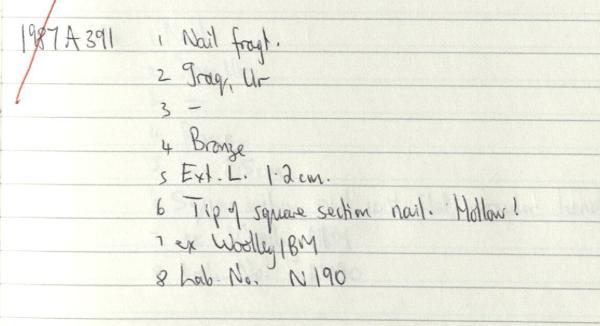 1987 A 391 1 Nail fragt.
2 Iraq, Ur
3 –
4 Bronze
5 Ext. L. 1.2 cm.
6 Tip of square section nail. Hollow!
7 ex Woolley/BM
8 Lab. No. N190